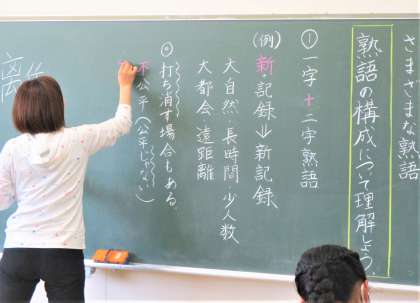 さまざまな熟語
熟語の構成について理解しよう。
① 一字+二字熟語
(例) 新・記録⇒新記録
大自然・長時間・少人数
大都会・遠距離
◎打ち消す場合もある。
不公平(公平じゃない)
離